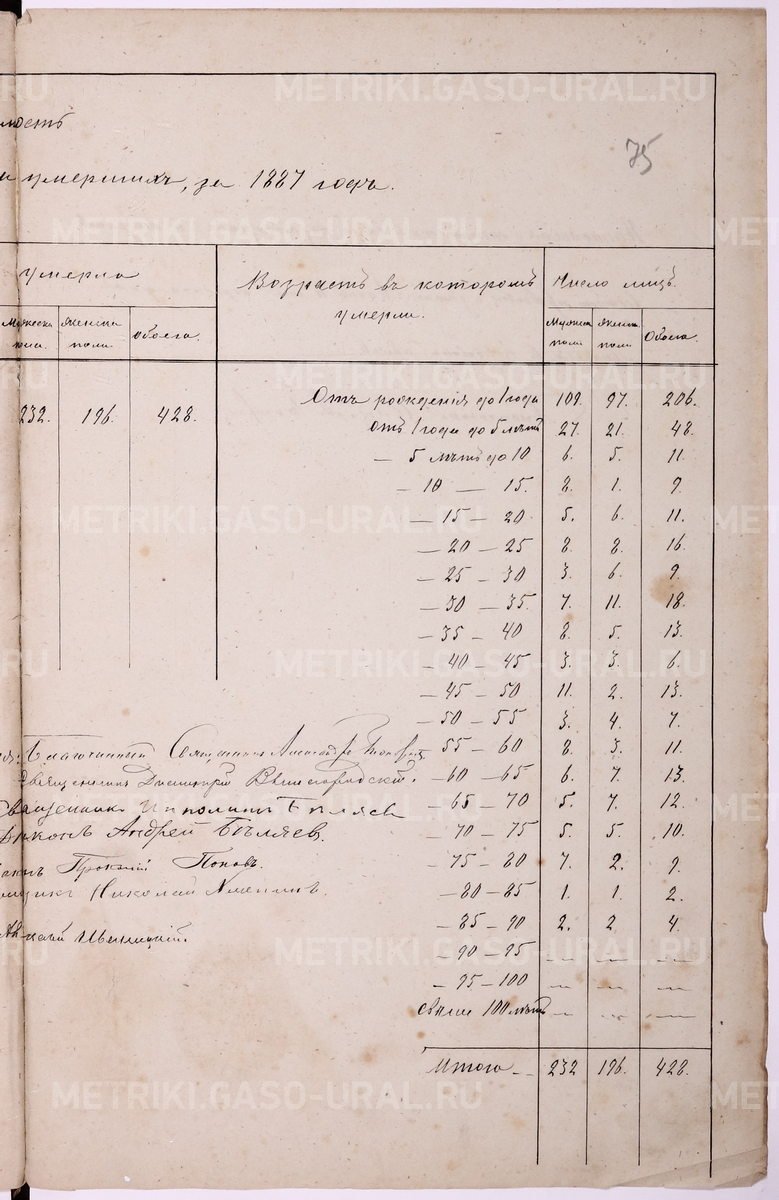 мость
75
и умершихъ, за 1887 годъ.
умерло
Возрастъ въ которомъ
умерли.
Число лицъ.
Мужеска
пола.
Женска
пола.
Обоего.
Мужеска
пола.
Женска
пола.
Обоего.
232. 196. 428.
Отъ рожденія до 1 года 109. 97. 206.
отъ 1 года до 5 лѣтъ 27. 21. 48.
— 5 лѣтъ до 10 6. 5. 11.
— 10 — 15. 8. 1. 9.
— 15 — 20 5. 6. 11.
— 20 — 25 8. 8. 16.
— 25 — 30 3. 6. 9.
— 30 — 35. 7. 11. 18.
— 35 — 40 8. 5. 13.
— 40 — 45 3. 3. 6.
— 45 — 50 11. 2. 13.
— 50 — 55 3. 4. 7.
— 55 — 60 8. 3. 11.
— 60 — 65 6. 7. 13.
— 65 — 70 5. 7. 12.
— 70 — 75 5. 5. 10.
— 75 — 80 7. 2. 9.
— 80 — 85 1. 1. 2.
— 85 — 90 2. 2 4.
— 90 — 95 — — —
— 95 — 100 — — —
свыше 100 лѣтъ — — —
Итого — 232 196. 428.
Благочинный Священникъ Александръ
Священникъ Димитрій
Священникъ Ипполитъ Бѣляев
Діаконъ Андрей Бѣляев.
Прокопій Поповъ.
Николай
METRIKI.GASO-URAL.RU